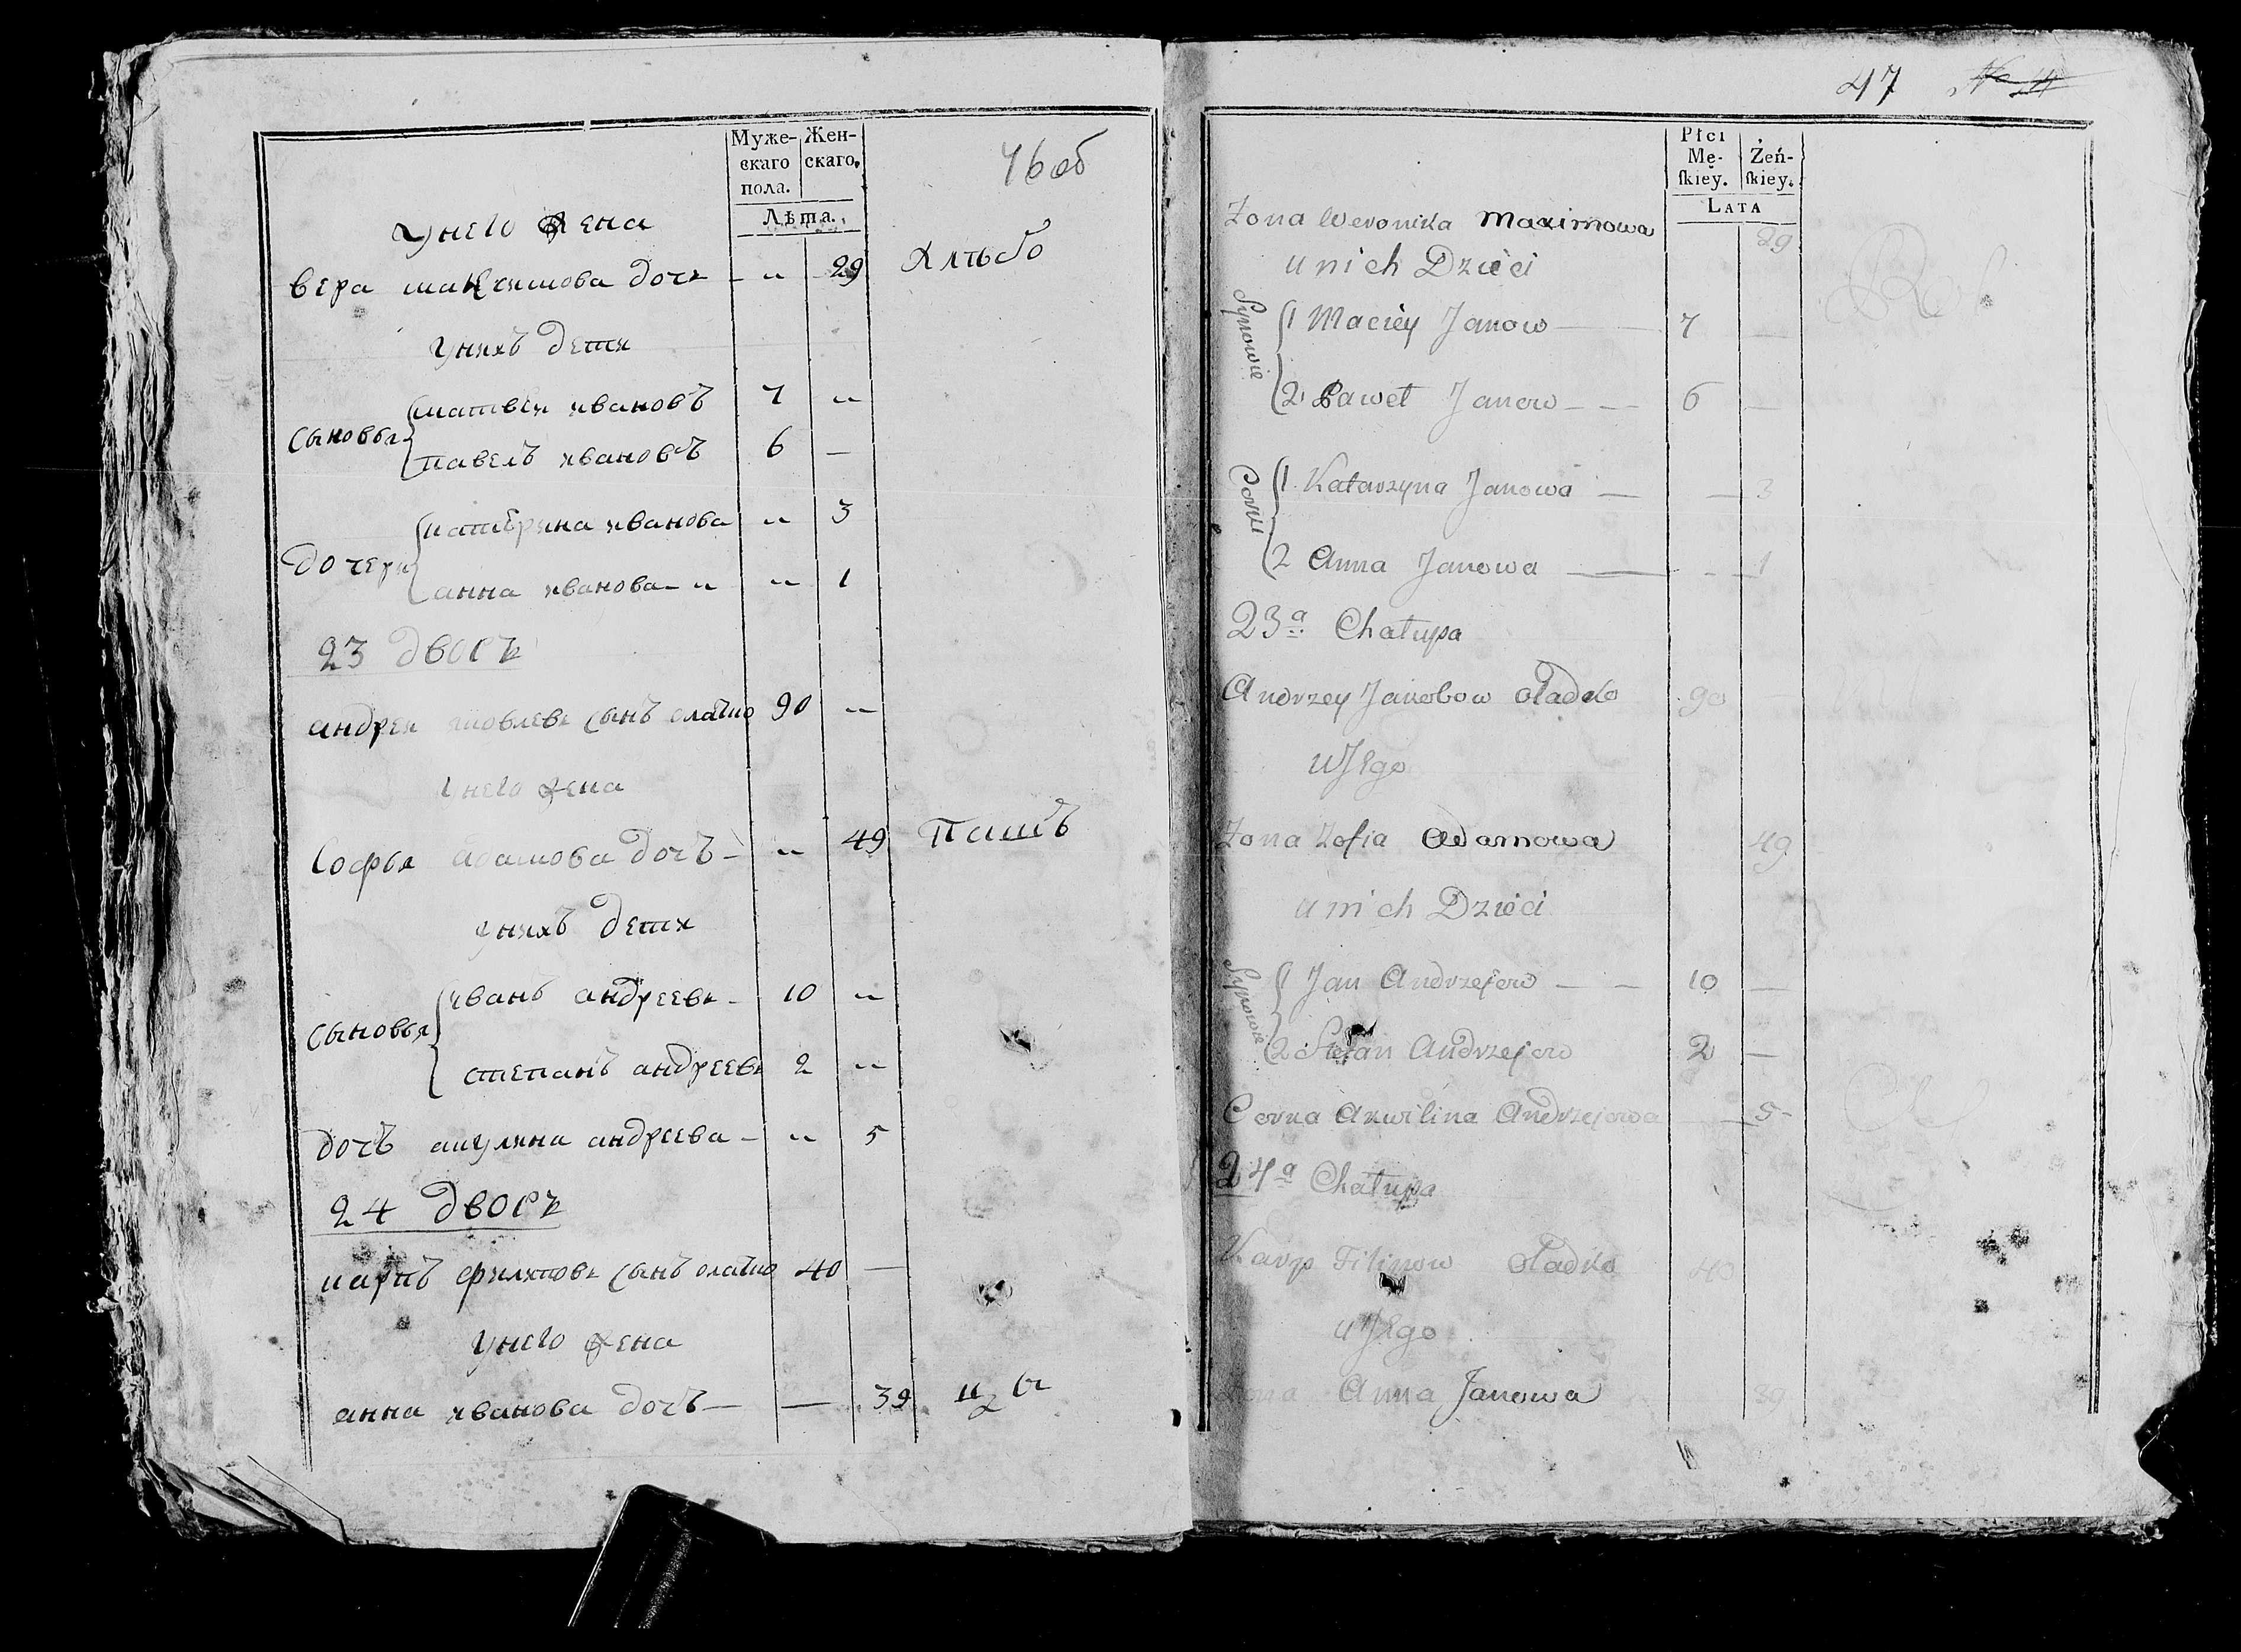 Муже-
скаго
пола.
Жен-
скаго.
Лѣта.
46 об
унего жена
вера максимова дочь - " 29
Хлѣбо
унихъ дети
сыновья
матвеи ивановъ 7 "
павелъ ивановъ 6 —
дочери
катерина иванова " 3
анна иванова " " 1
23 дворъ
андреи яковлевъ сынъ олатко 90 "
унего жена
софья адамова дочъ - " 49
Пашъ
унихъ дети
сыновья
иванъ андреевъ - 10 "
степанъ андреевъ 2 "
дочъ акулина андреева - " 5
24 дворъ
карпъ филиповъ сынъ олатко 40 —
унего жена
анна иванова дочъ — — 39
47
Płci
Mę-
ſkiey.
Żeń-
ſkiey.
LATA
Zona Weronika Maximowa 29
u nich Dzieci
Synowie
1 Maciey Janow — 7 —
2 Paweł Janow — — 6 —
Corki
1. Katarzyna Janowa — — 3
2 Anna Janowa — - - 1
23ª Chałupa
Andrzey Jakobow Oładko 90 —
u Jego
Zona Zofia Adamowa 49
u nich Dzieci
Synowie
1 Jan Andrzejow — — 10 —
2 Stefan Andrzejow 2 —
Corka Akwilina Andrzejowa — 5-
24ª Chałupa
Karp Filipow Oładko 40
u Jego
Zona Anna Janowa 39